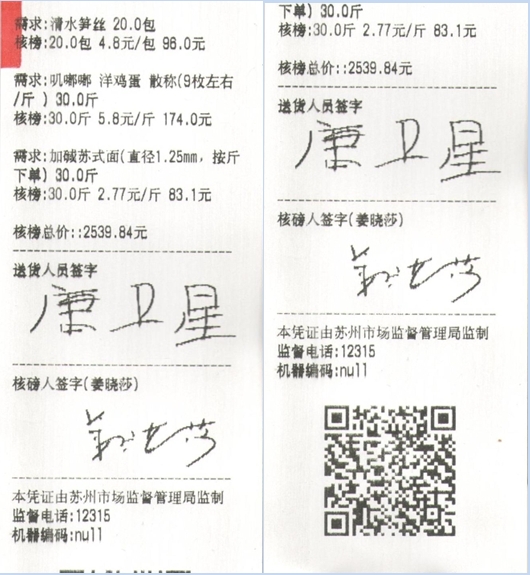 需求:清水笋丝 20.0包
核榜:20.0包 4.8元/包 96.0元
需求:叽嘟嘟 洋鸡蛋 散称(9枚左右
/斤 ) 30.0斤
核榜:30.0斤 5.8元/斤 174.0元
需求:加碱苏式面(直径1.25mm，按斤
下单) 30.0斤
核榜:30.0斤 2.77元/斤 83.1元
核榜总价::2539.84元
送货人员签字
唐卫星
核磅人签字(姜晓莎)
本凭证由苏州市场监督管理局监制
监督电话:12315
机器编码:null
下单) 30.0斤
核榜:30.0斤 2.77元/斤 83.1元
核榜总价::2539.84元
送货人员签字
唐卫星
核磅人签字(姜晓莎)
本凭证由苏州市场监督管理局监制
监督电话:12315
机器编码:null